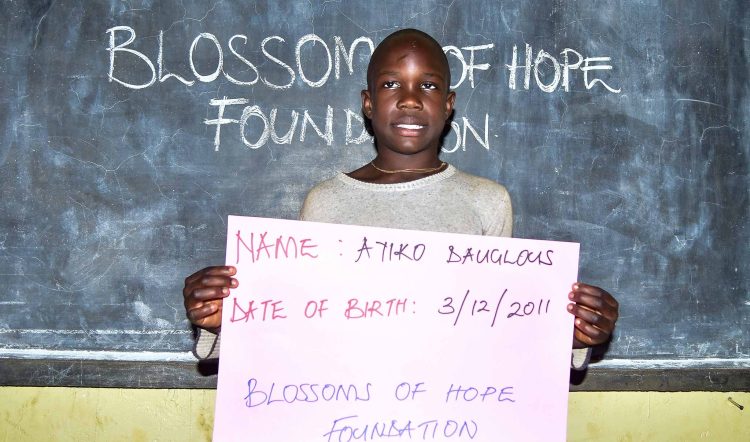 BLOSSOMS OF HOPE
FOUNDATION
NAME : AYIKO DAUGLOUS
DATE OF BIRTH: 3/12/2011
BLOSSOMS OF HOPE
FOUNDATION